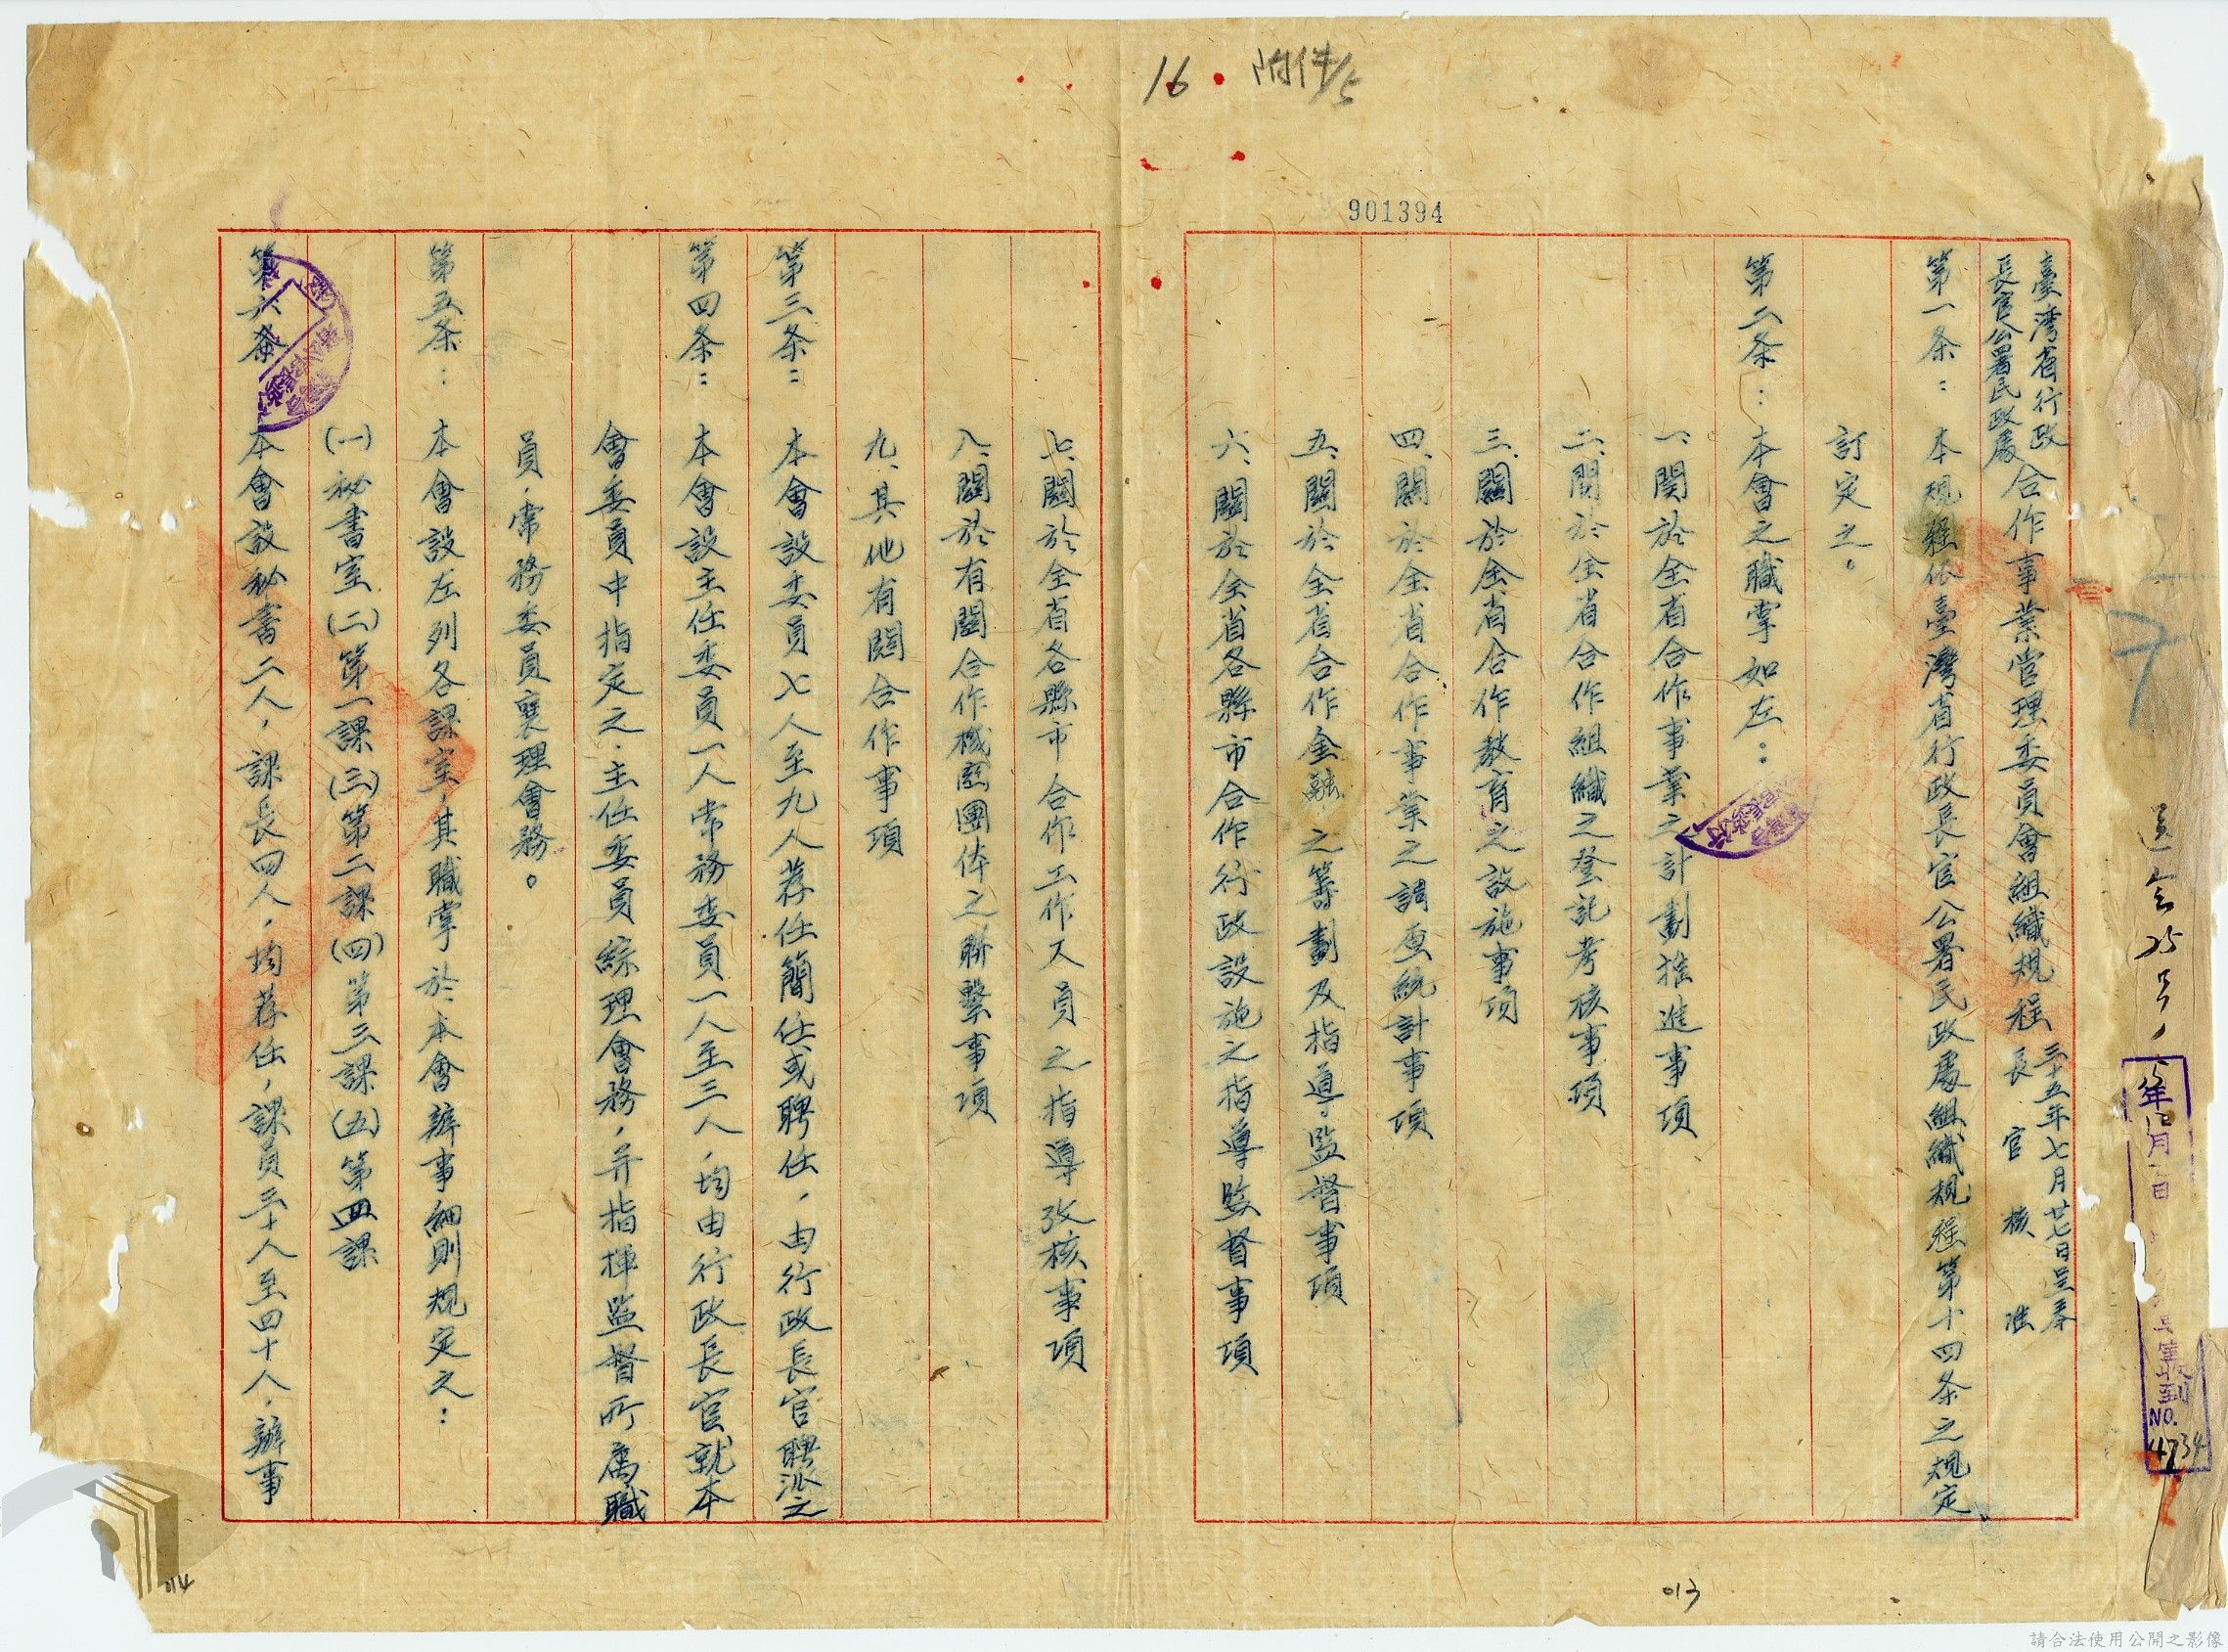 16
附件15
901394
臺灣省行政長官公署民政處合作事業管理委員會組織規程 三十五年七月廿七日呈奉長官核准
第一条：本規程依臺灣省行政長官公署民政處組織規程第十四条之規定
訂定之。
第二条：本會之職掌如左：
一、関於全省合作事業之計劃推進事項
二、関於全省合作組織之登記考核事項
三、關於全省合作教育之設施事項
四、關於全省合作事業之調查統計事項
五、關於全省合作金融之籌劃及指導監督事項
六、關於全省各縣市合作行政設施之指導監督事項
七、關於全省各縣市合作工作人員之指導攷核事項
八、關於有關合作機関團体之聯繫事項
九、其他有關合作事項
第三条：本會設委員七人至九人荐任簡任或聘任，由行政長官聘派之
第四条：本會設主任委員一人常務委員一人至三人，均由行政長官就本
會委員中指定之．主任委員綜理會務，并指揮監督所属職
員，常務委員襄理會務。
第五条：本會設左列各課室，其職掌於本會辦事細則規定之：
(一)秘書室(二)第一課(三)第二課(四)第三課(五)第四課
第六条 本會設秘書二人，課長四人，均荐任，課員三十人至四十人，辦事
年 月 日
收到
NO.
4734
013
014
請合法使用公開之影像